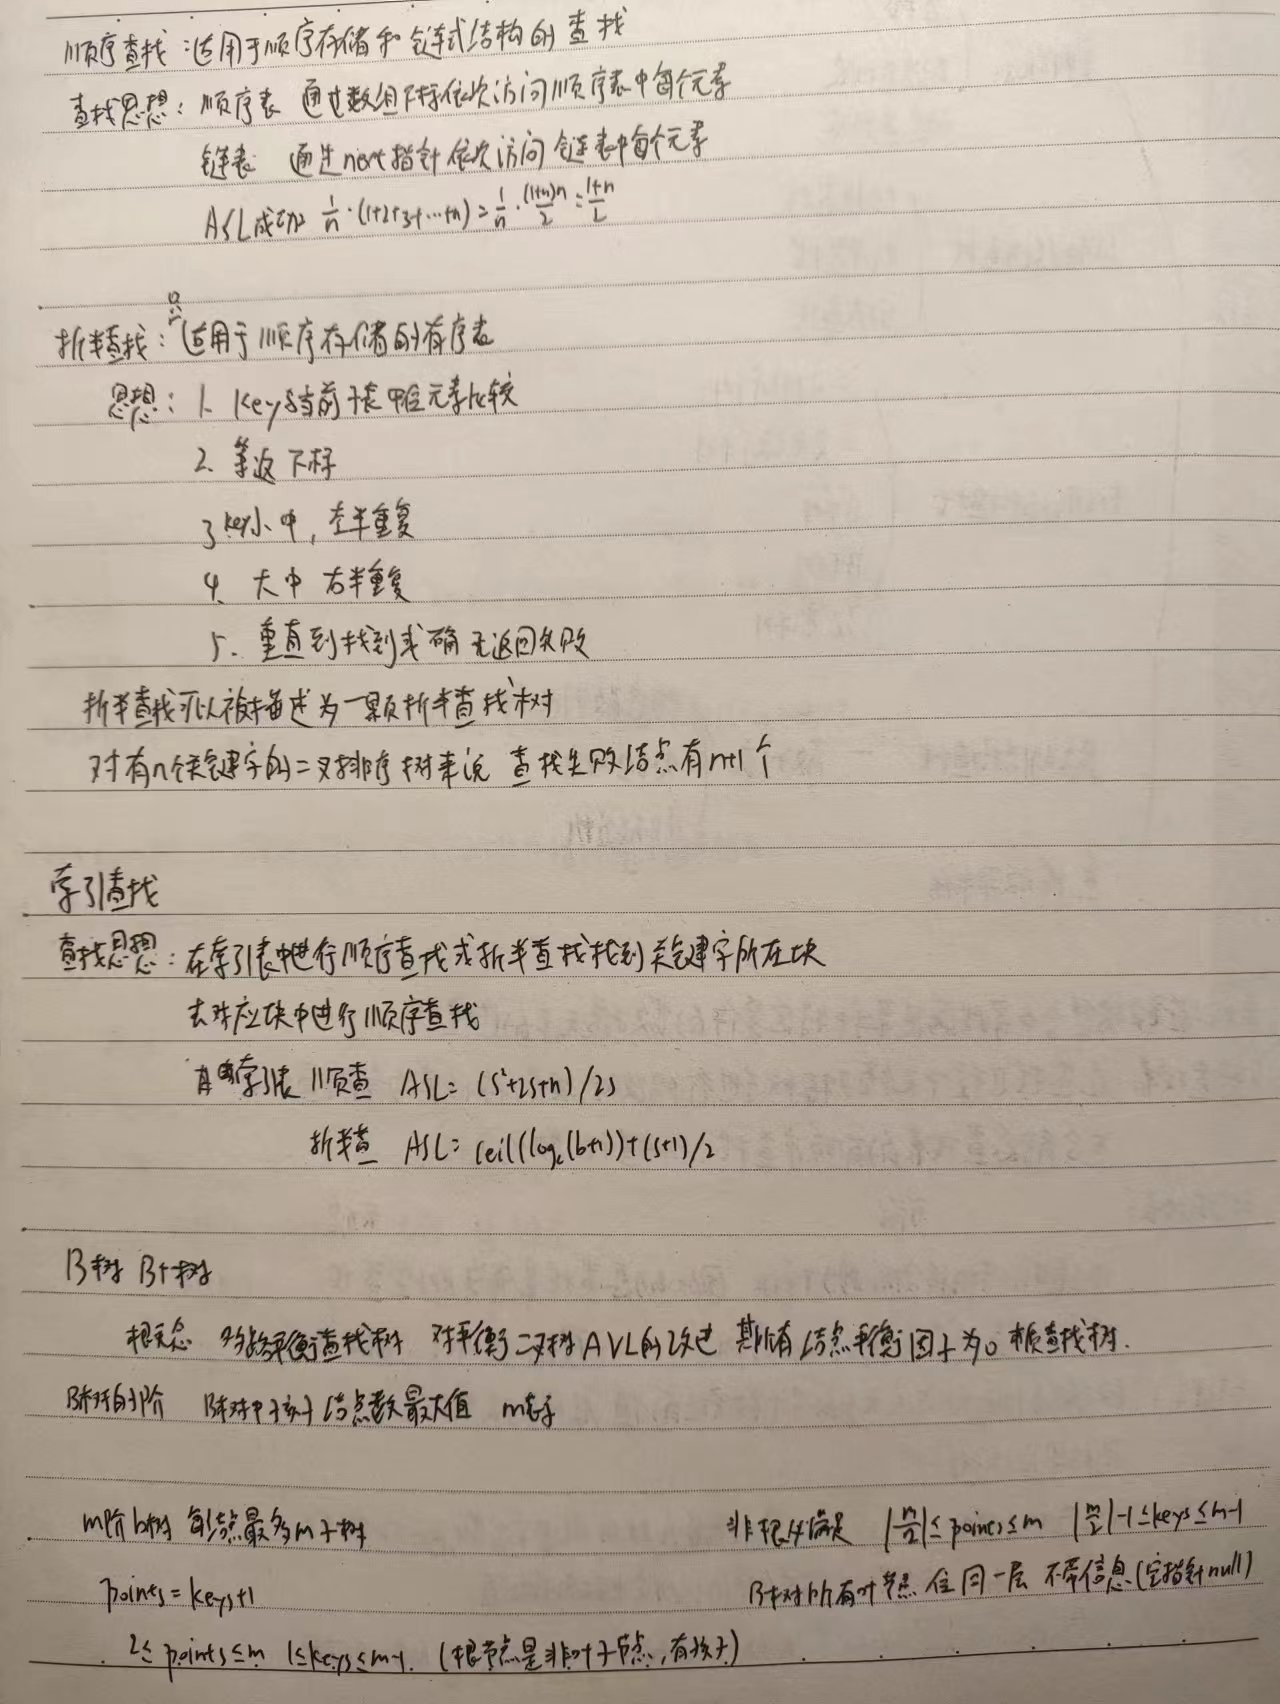 顺序查找：适用于顺序存储和链式结构的查找
查找思想：顺序表 通过数组下标依次访问顺序表中每个元素
链表 通过next指针依次访问链表中每个元素
ASL成功 1/n·(1+2+3+…+n)=1/n·(1+n)n/2=(1+n)/2
折半查找：只适用于顺序存储的有序表
思想：1. key与当前表中位元素比较
2. 等返下标
3 key小中，左半重复
4. 大中 右半重复
5. 重直到找到或确无返回失败
折半查找可以被描述为一颗折半查找树
对有n个关键字的二叉排序树来说 查找失败结点有n+1个
索引查找
查找思想：在索引表中进行顺序查找或折半查找找到关键字所在块
去对应块中进行顺序查找
索引表 顺查 ASL=(s²+2s+n)/2s
折半查 ASL=ceil(log₂(b+1))+(s+1)/2
B树 B+树
概念 多路平衡查找树 对平衡二叉树AVL的改进 其所有结点平衡因子为0 查找树.
B树的阶 B树中孩子结点数最大值 m表示
m阶b树 每结点最多m子树
非根满足 ⌈m/2⌉≤points≤m ⌈m/2⌉-1≤keys≤m-1
points=keys+1
B树所有叶节点 在同一层 不带信息(空指针null)
2≤points≤m 1≤keys≤m-1. (根节点是非叶子节点,有孩子)